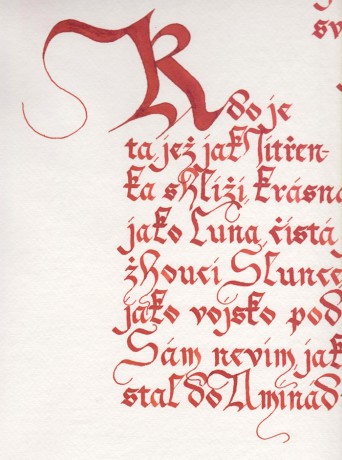 sv
Kdo je
ta, jež jak Jitřen-
ka shlíží, krásna
jako Luna, čistá
žhoucí Slunce
jako vojsko pod
Sám nevím, jak
stal do Aminad